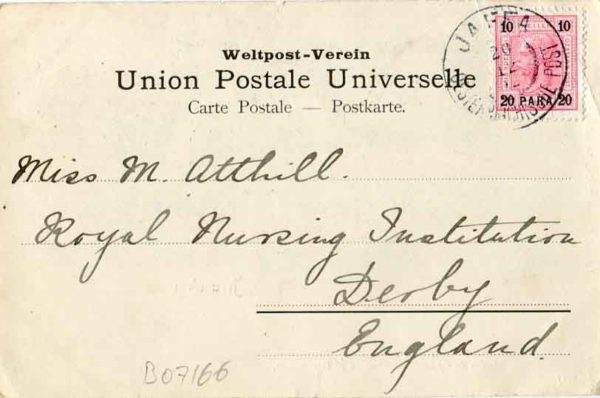 Weltpost-Verein
Union Postale Universelle
Carte Postale — Postkarte.
10 10
20 PARA 20
JAFFA
Miss M. Atthill.
Royal Nursing Institution
Derby
England.
B07166